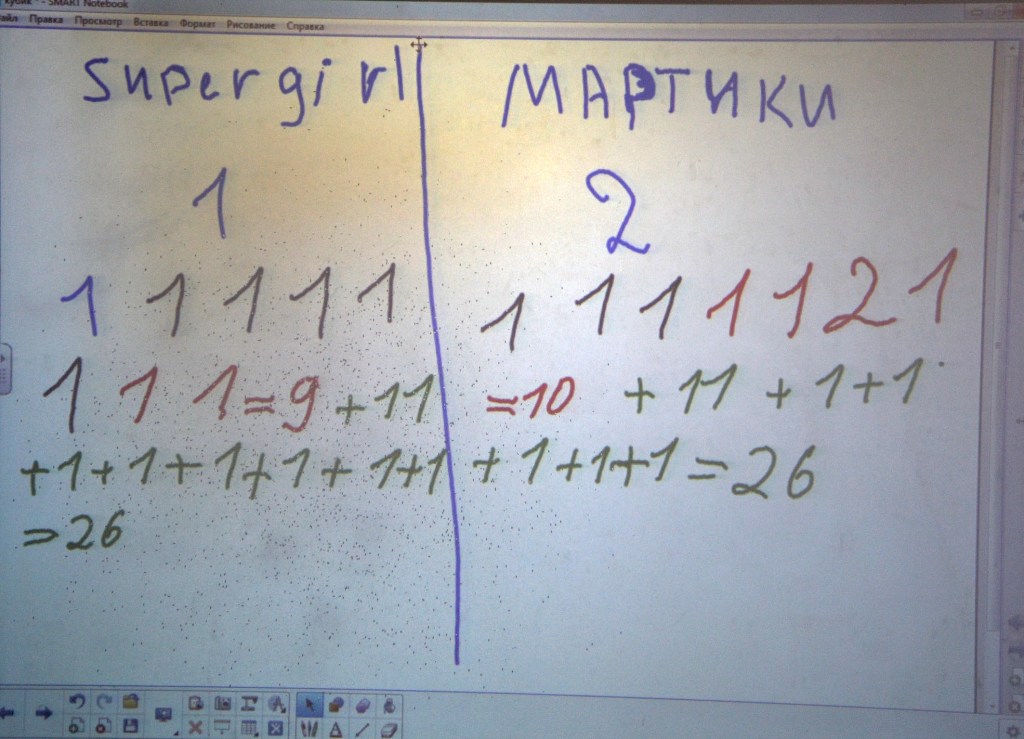 кубик - SMART Notebook
айл Правка Просмотр Вставка Формат Рисование Справка
supergirl
1
1 1 1 1 1
1 1 1 = 9 + 11
+1+1+1+1+1+1
=26
МАРТИКИ
2
1 1 1 1 1 2 1
=10 + 11 + 1+1
+1+1+1=26